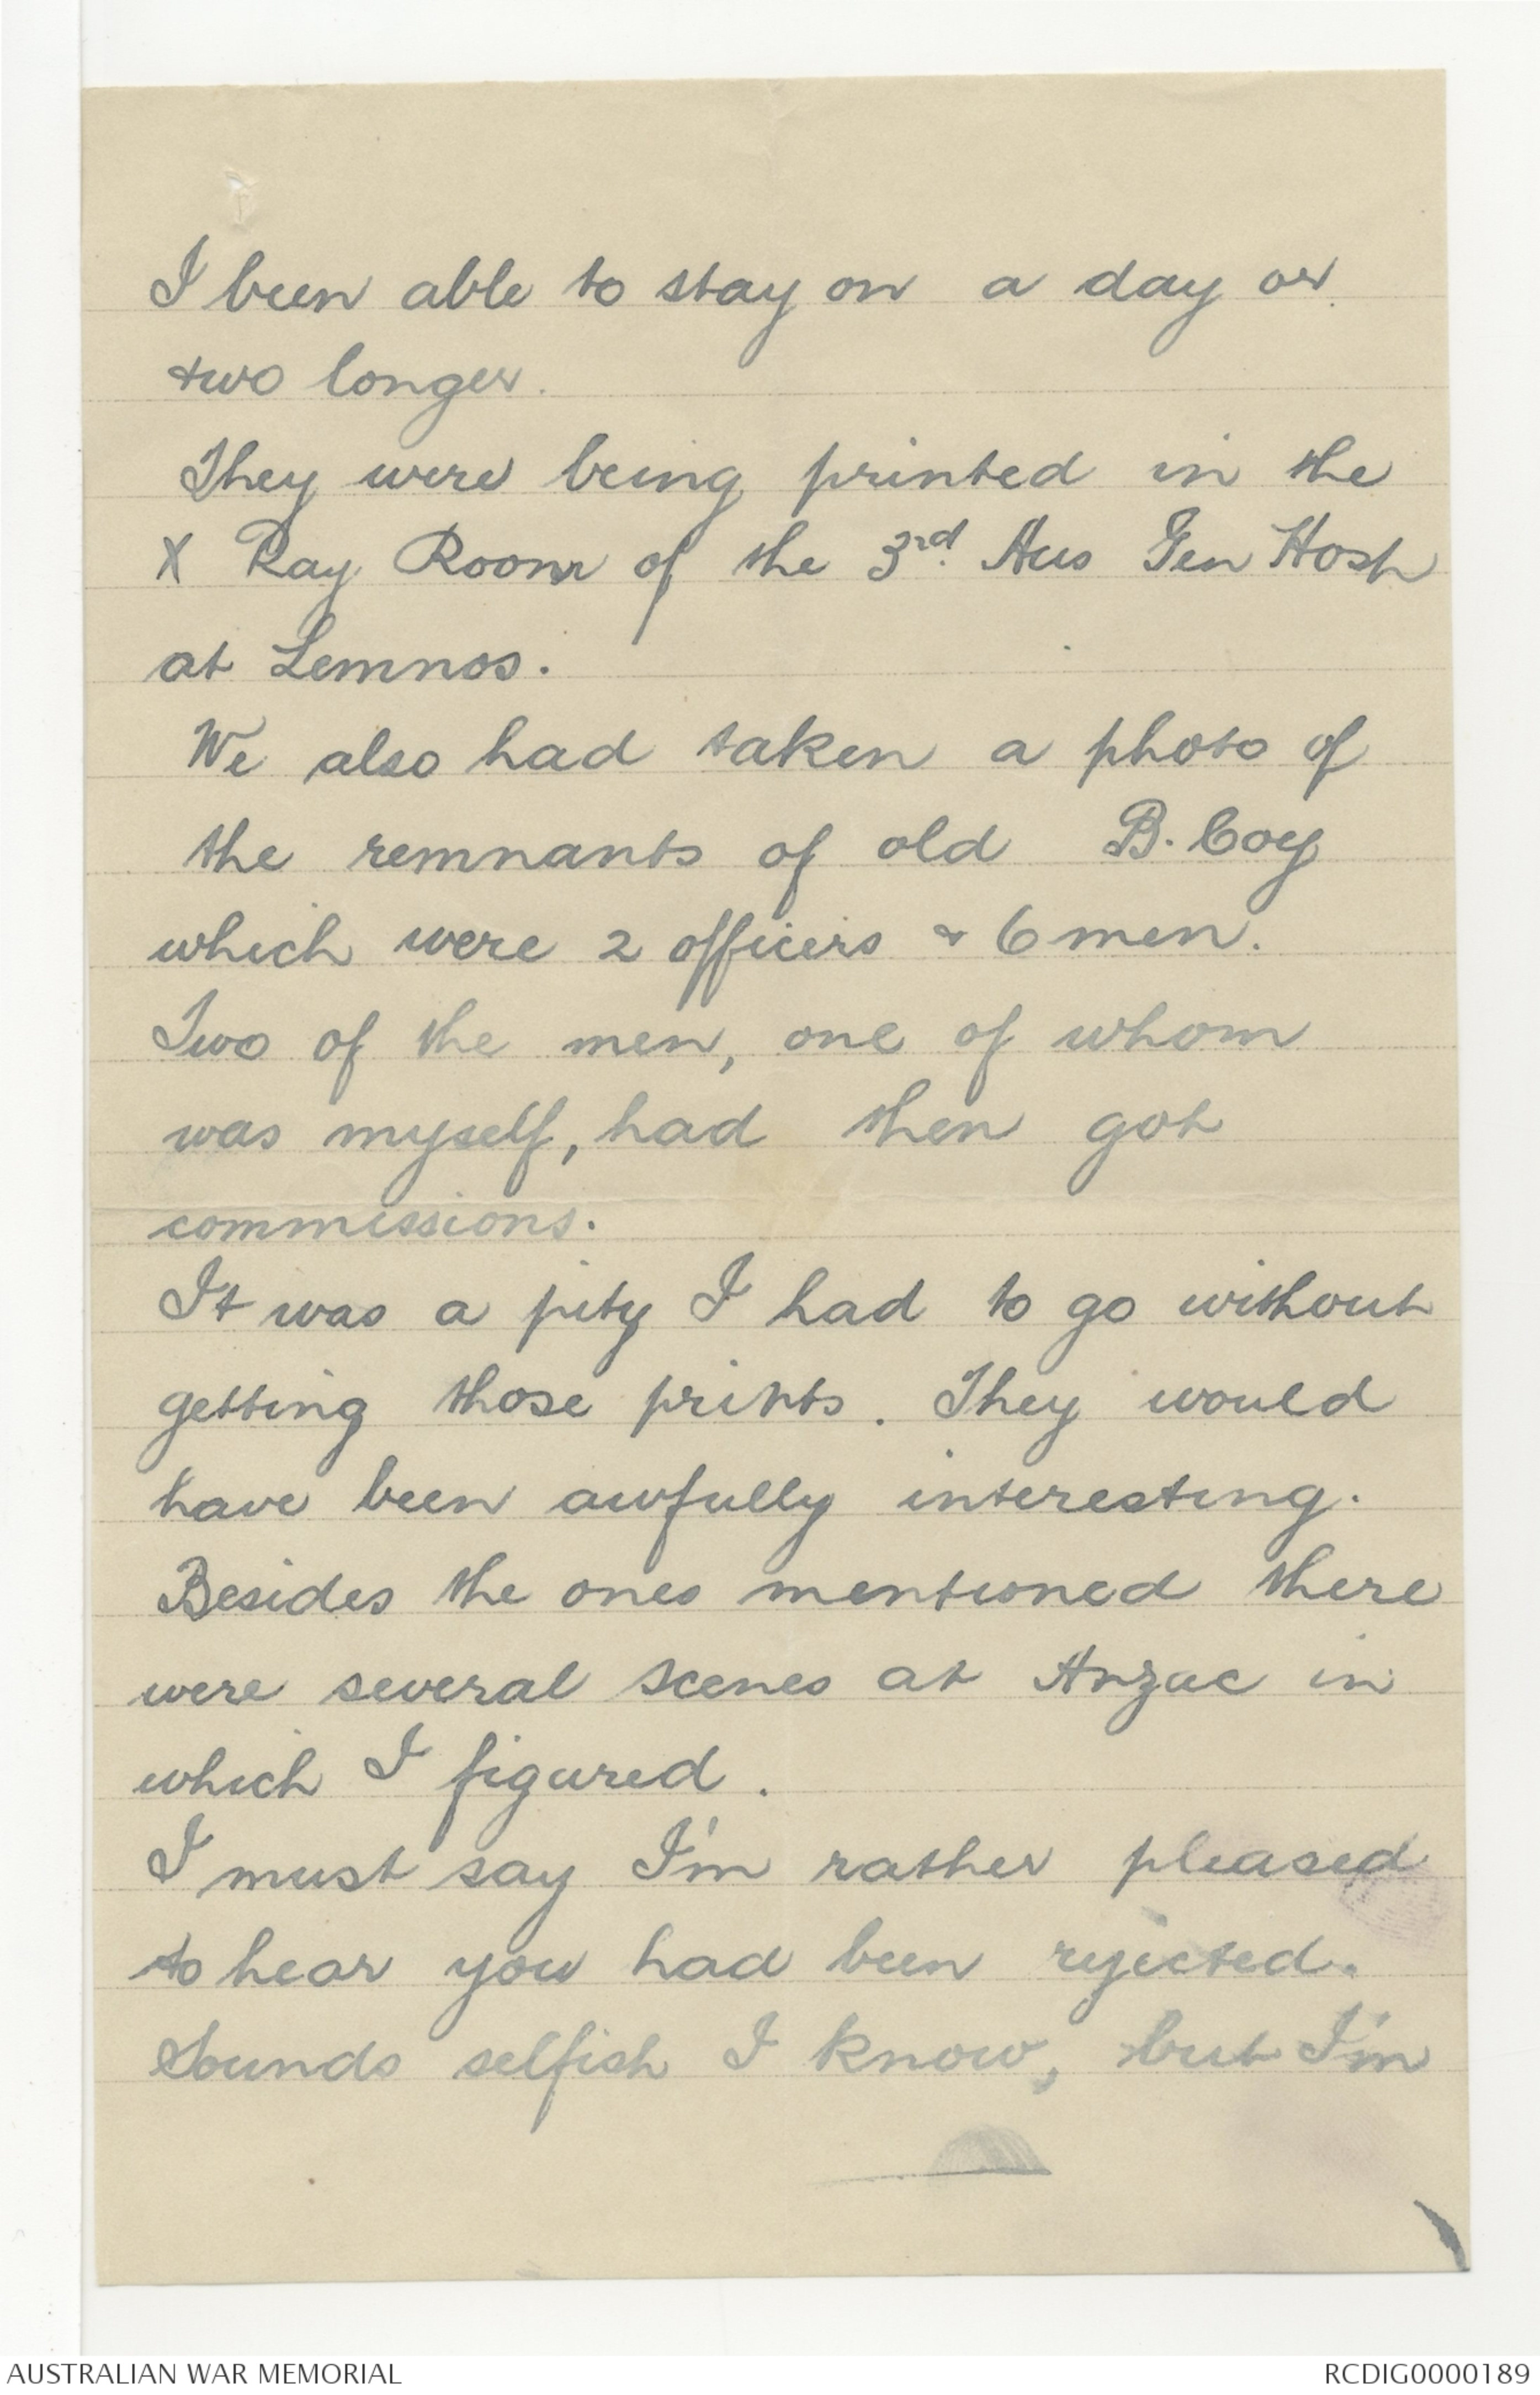 I been able to stay on a day or
two longer.
They were being printed in the
X Ray Room of the 3rd. Aus Gen Hosp
at Lemnos.
We also had taken a photo of
the remnants of old B. Coy
which were 2 officers & 6 men.
Two of the men, one of whom
was myself, had then got
commissions.
It was a pity I had to go without
getting those prints. They would
have been awfully interesting.
Besides the ones mentioned there
were several scenes at Anzac in
which I figured.
I must say I'm rather pleased
to hear you had been rejected.
Sounds selfish I know, but I'm
AUSTRALIAN WAR MEMORIAL
RCDIG0000189